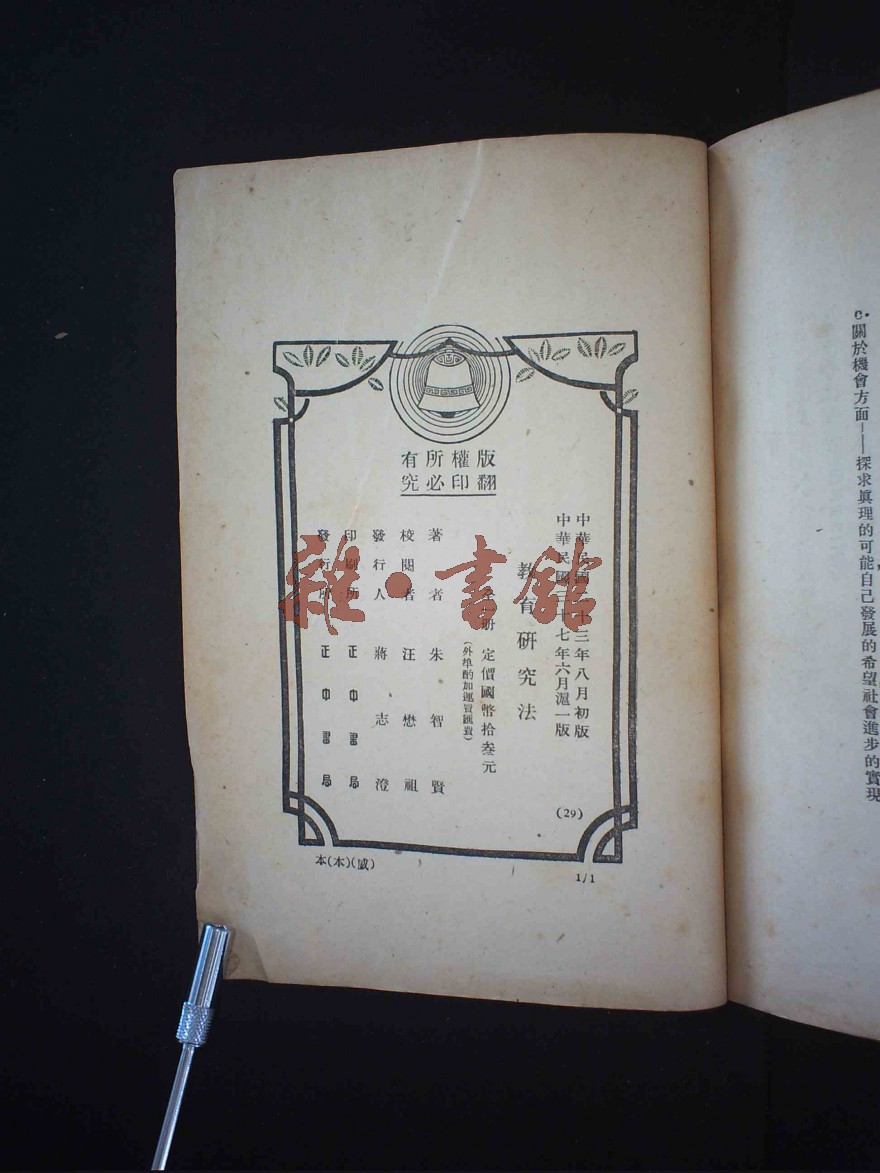 版權所有
翻印必究
中華民國 十三年八月初版
中華民國 十七年六月滬一版
教育研究法
冊 定價國幣拾叁元
(外埠酌加運費匯費)
著者 朱智賢
校閱者 汪懋祖
發行人 蔣志澄
印刷所 正中書局
發行所 正中書局
(29)
本(本)(威)
1/1
雜·書館
c.關於機會方面——探求眞理的可能自己發展的希望社會進步的實現